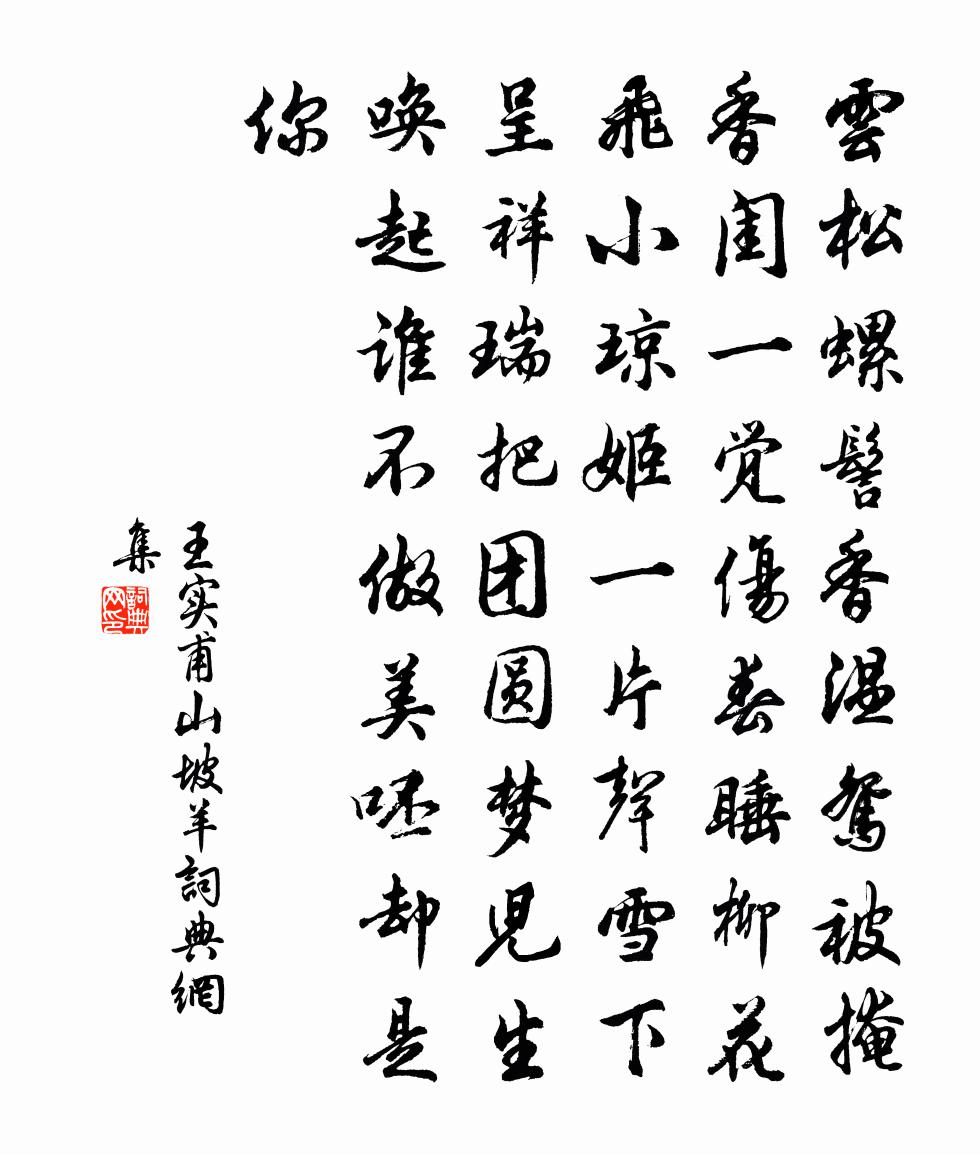 雲松螺髻香温鸳被掩
香闺一觉傷春睡柳花
飛小琼姬一片聲雪下
呈祥瑞把团圆梦児生
唤起谁不做美呸却是
你
王实甫山坡羊詞典網
集
詞典
网印